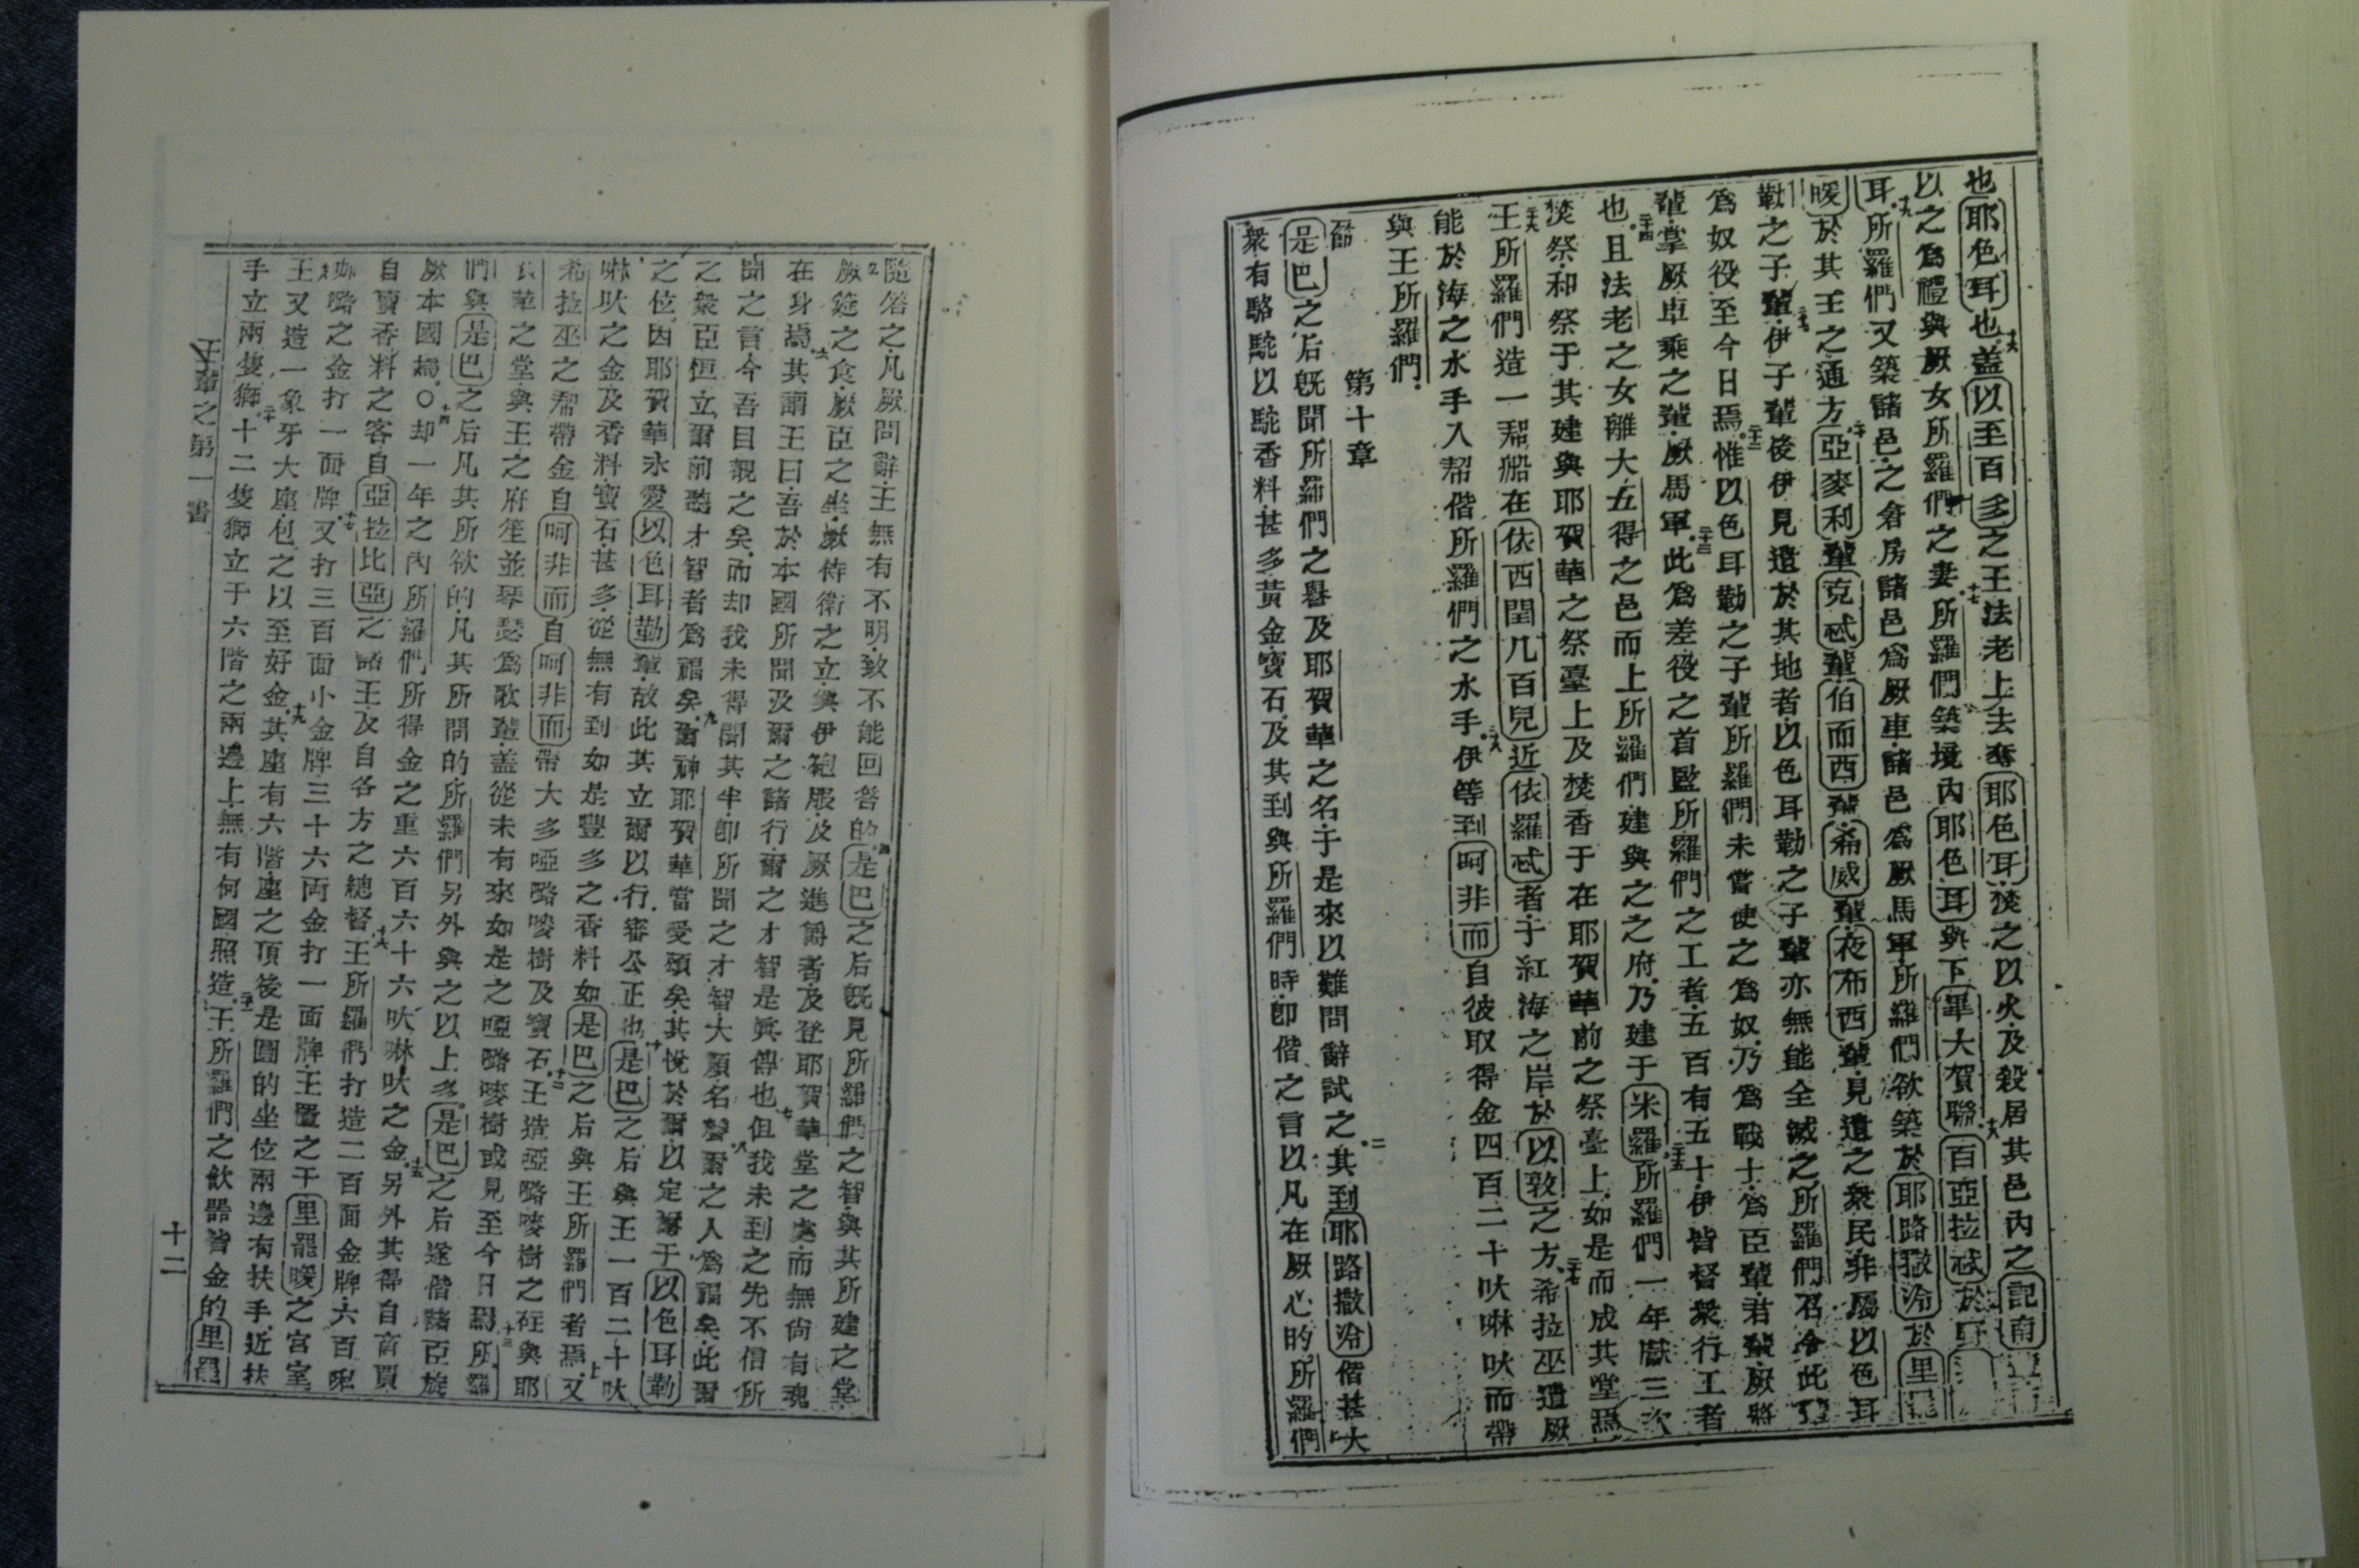 也耶色耳也盖以至百多之王法老上去奪耶色耳焚之以火及殺居其邑內之記南
以之爲禮與厥女所羅們之妻所羅們築墁內耶色耳與下畢大賀聯百亞拉忒於野
耳所羅們又築諸邑之倉房諸邑爲厥車諸邑爲厥馬軍所羅們欲築於耶路撒冷於里罷
暖於其王之通方亞麥利輩克忒輩伯而西輩希威輩夜布西輩見遺之衆民非屬以色耳
勒之子輩伊子輩後伊見遺於其地者以色耳勒之子輩亦無能全滅之所羅們召令此
爲奴役至今日焉惟以色耳勒之子輩所羅們未嘗使之爲奴乃爲戰士爲臣輩君輩厥將
輩掌厥車乘之輩厥馬軍此爲差役之首監所羅們之工者五百有五十伊皆督衆行工者
也且法老之女離大五得之邑而上所羅們建與之之府乃建于米羅所羅們一年獻三次
焚祭和祭于其建與耶賀華之祭臺上及焚香于在耶賀華前之祭臺上如是而成其堂焉
王所羅們造一帮船在依西閏几百兒近依羅忒者于紅海之岸於以敦之方希拉巫遣厥
能於海之水手入帮偕所羅們之水手伊等到呵非而自彼取得金四百二十吠啉吠而帶
與王所羅們
第十章
節
是巴之后旣聞所羅們之譽及耶賀華之名于是來以難問辭試之二其到耶路撒冷偕甚大
衆有駱駝以駝香料甚多黃金寶石及其到與所羅們時卽偕之言以凡在厥心的所羅們
隨答之凡厥問辭王無有不明致不能回答的是巴之后旣見所羅們之智與其所建之堂
厥筵之食厥臣之坐厥侍衛之立與伊袍服及厥進爵者及登耶賀華堂之處而無尙有魂
在身焉其謂王曰吾於本國所聞及爾之諸行爾之才智是眞傳也但我未到之先不信所
聞之言今吾目覩之矣而却我未得聞其半卽所聞之才智大願名聲爾之人爲福矣此爾
之衆臣恒立爾前聽才智者爲福矣爾神耶賀華當受頌矣其悅於爾以定爾于以色耳勒
之位因耶賀華永愛以色耳勒輩故此其立爾以行審公正也是巴之后與王一百二十吠
啉吠之金及香料寶石甚多從無有到如是豐多之香料如是巴之后與王所羅們者焉又
希拉巫之帮帶金自呵非而自呵非而帶大多啞路唛樹及寶石王造啞路唛樹之在與耶
賀華之堂與王之府笙並琴瑟爲歌輩盖從未有來如是之啞路唛樹或見至今日焉所羅
們與是巴之后凡其所欲的凡其所問的所羅們另外與之以上多是巴之后遂偕諸臣旋
厥本國焉〇却一年之內所羅們所得金之重六百六十六吠啉吠之金另外其得自商賈
自賣香料之客自亞拉比亞之諸王及自各方之總督王所羅們打造二百面金牌六百
路之金打一面牌又打三百面小金牌三十六両金打一面牌王置之于里罷暖之宮室
王又造一象牙大座包之以至好金其座有六階座之頂後是圓的坐位兩邊有扶手近扶
手立兩隻獅十二隻獅立于六階之兩邊上無有何國照造王所羅們之飲器皆金的里罷
王輩之第一書
十二